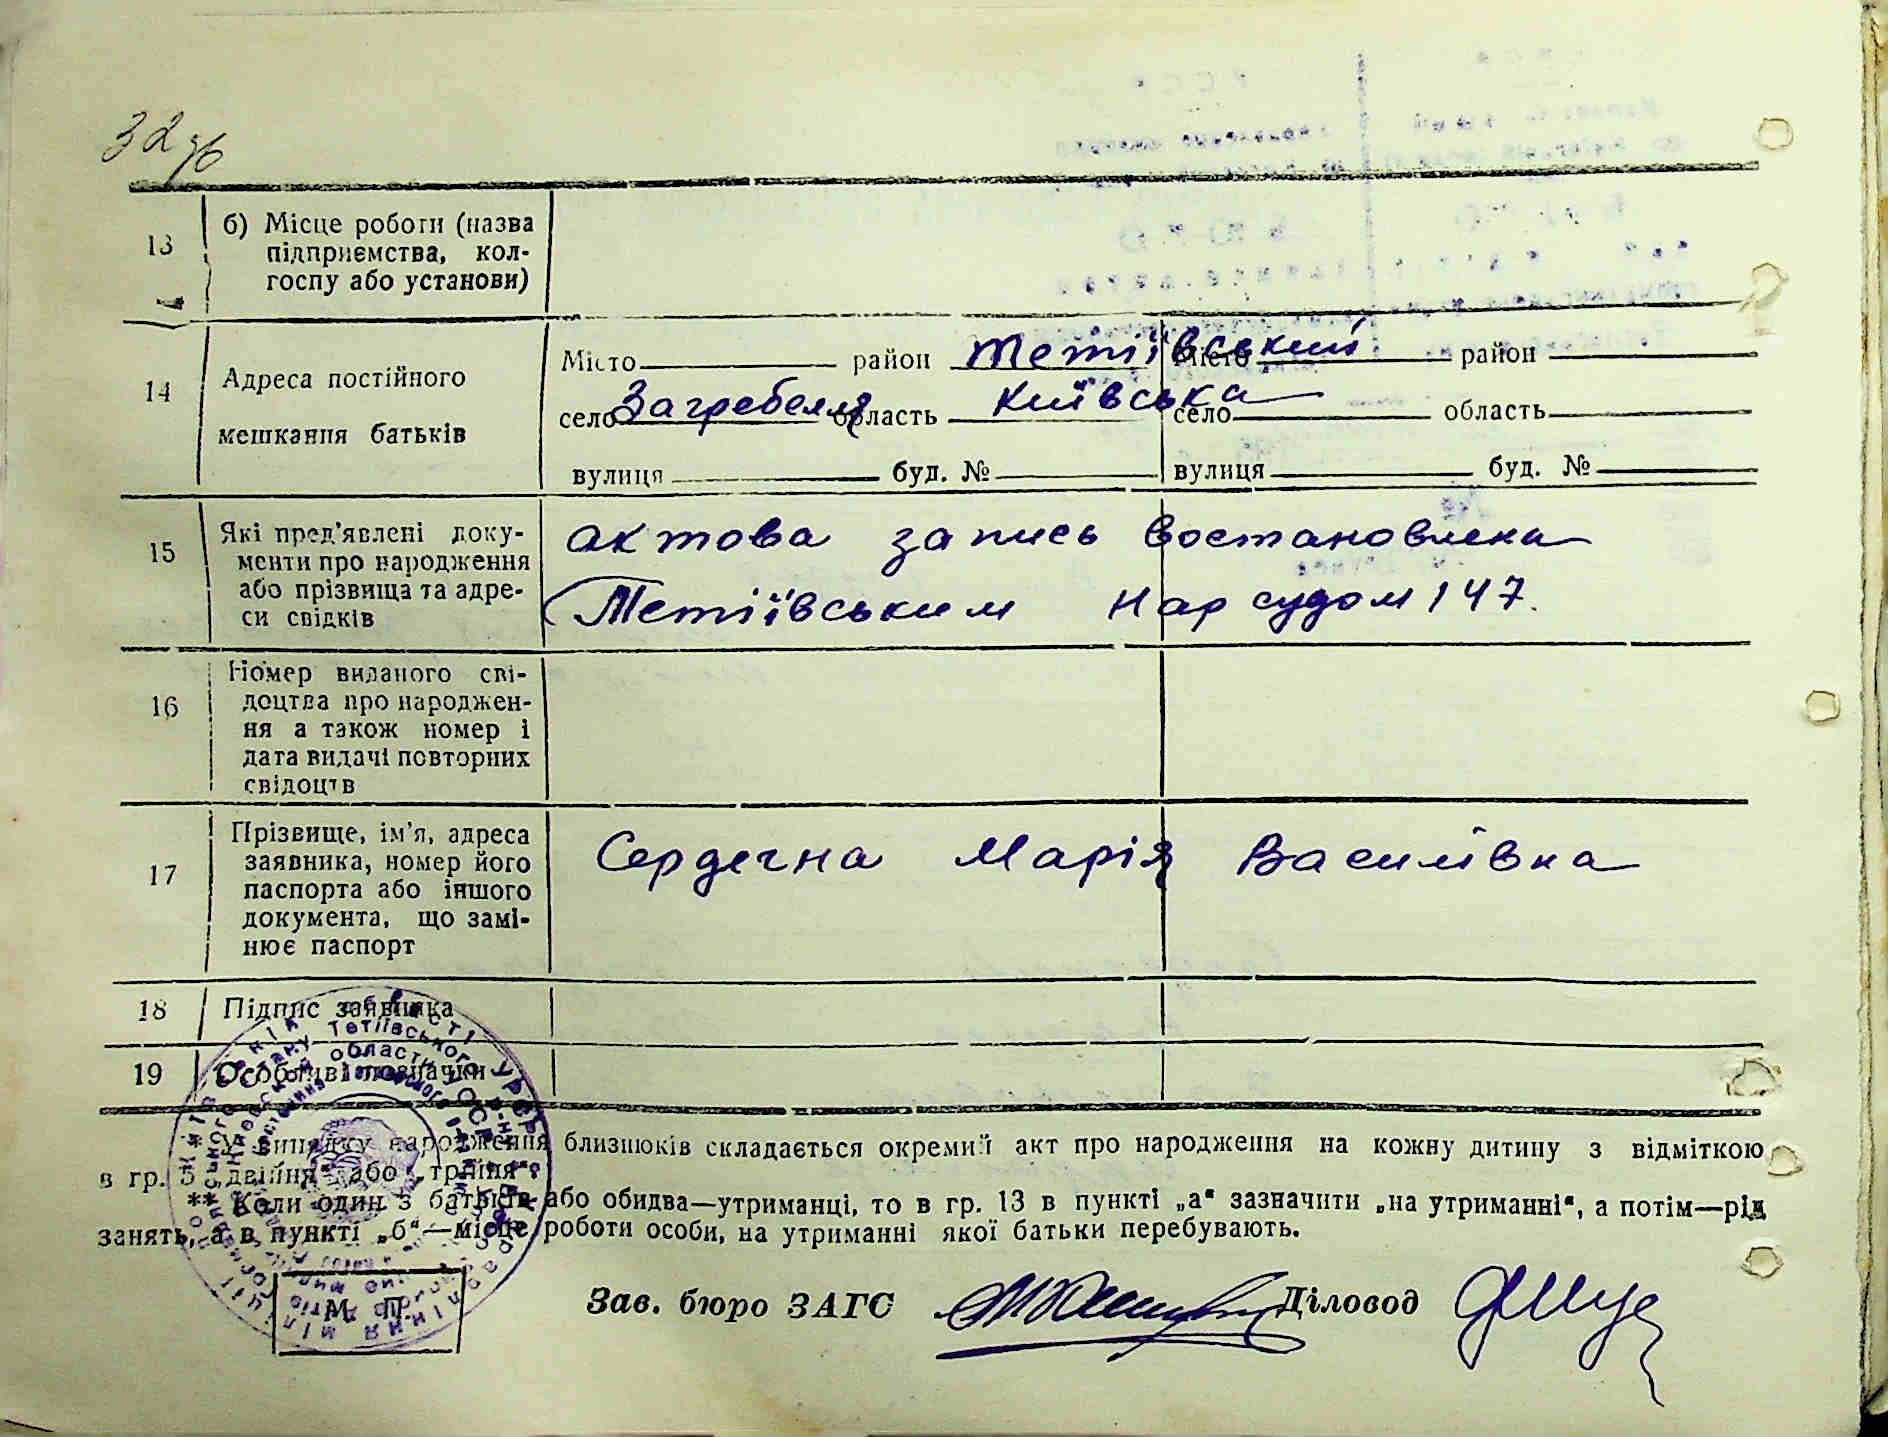 32 зв
13
б) Місце роботи (назва
підприємства, кол-
госпу або установи)
14
Адреса постійного
мешкання батьків
Місто район Тетіївський Місто район
село Загребелля область Київська село область
вулиця буд. № вулиця буд. №
15
Які пред'явлені доку-
менти про народження
або прізвища та адре-
си свідків
актова запись востановлена
Тетіївським Нарсудом 147.
16
Номер виданого сві-
доцтва про народжен-
ня а також номер і
дата видачі повторних
свідоцтв
17
Прізвище, ім'я, адреса
заявника, номер його
паспорта або іншого
документа, що замі-
нює паспорт
Сердечна Марія Василівна
18
Підпис заявника
19
Особливі позначки
* У випадку народження близнюків складається окремий акт про народження на кожну дитину з відміткою
в гр. 5 „двійня“ або „трійня“.
** Коли один з батьків або обидва—утриманці, то в гр. 13 в пункті „а“ зазначити „на утриманні“, а потім—рід
занять, а в пункті „б“—місце роботи особи, на утриманні якої батьки перебувають.
М. П.
Зав. бюро ЗАГС Діловод